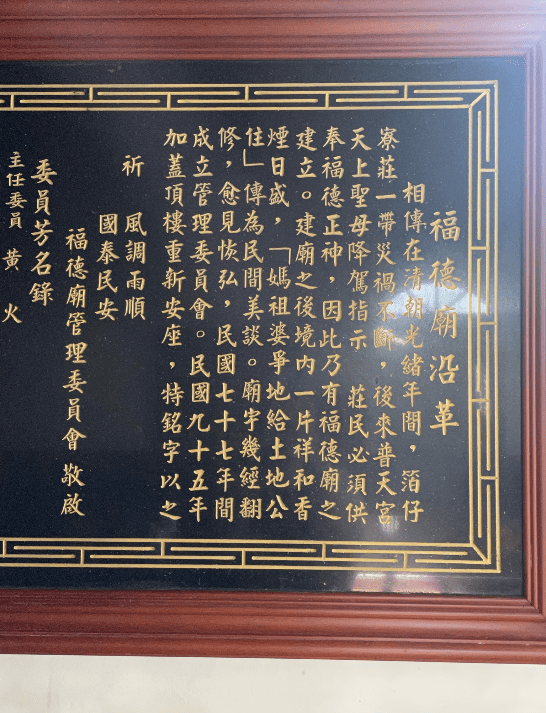 福德廟沿革
相傳在清朝光緒年間，箔仔
寮莊一帶災禍不斷，後來普天宮
天上聖母降駕指示　莊民必須供
奉福德正神，因此乃有福德廟之
建立。建廟之後境內一片祥和香
煙日盛，「媽祖婆爭地給土地公
住」傳為民間美談。廟宇幾經翻
修，愈見恢弘，民國七十七年間
成立管理委員會。民國九十五年
加蓋頂樓重新安座，特銘字以之
祈　風調雨順
國泰民安
福德廟管理委員會敬啟
委員芳名錄
主任委員　黃　火